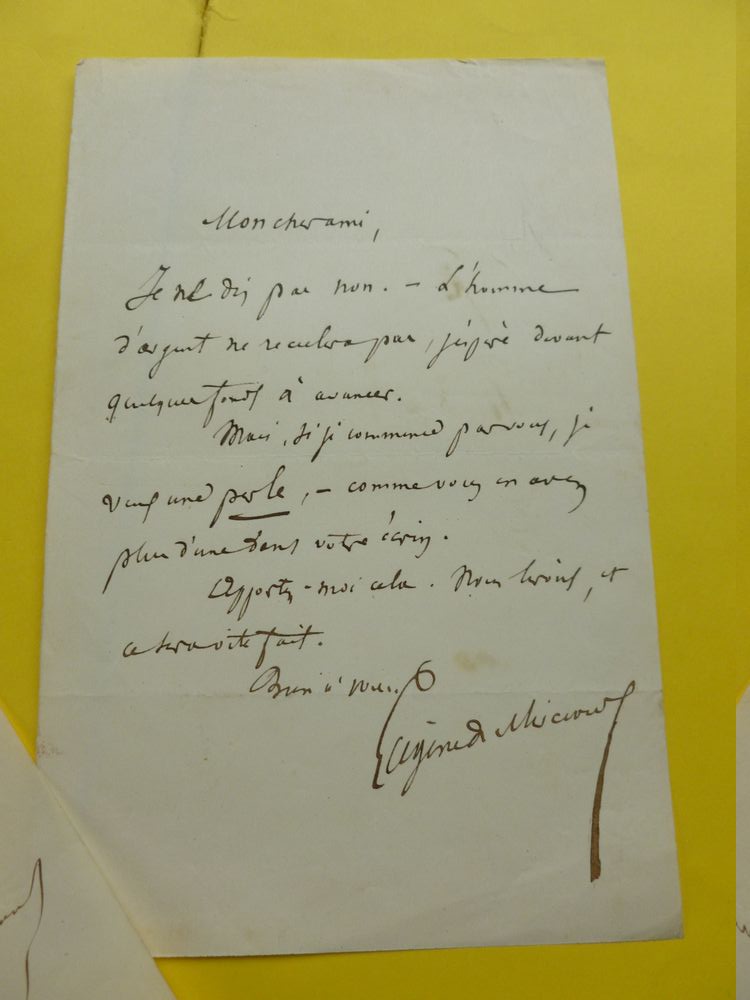 Mon cher ami,
Je ne dis pas non. — L'homme
d'argent ne reculera pas, j'espère devant
quelques fonds à avancer.
Mais, si je commence par vous, je
veux une perle, — comme vous en avez
plus d'une dans votre écrin.
Apportez-moi cela. Nous lirons, et
ce sera vite fait.
Bien à vous.
Eugène de Mirecourt